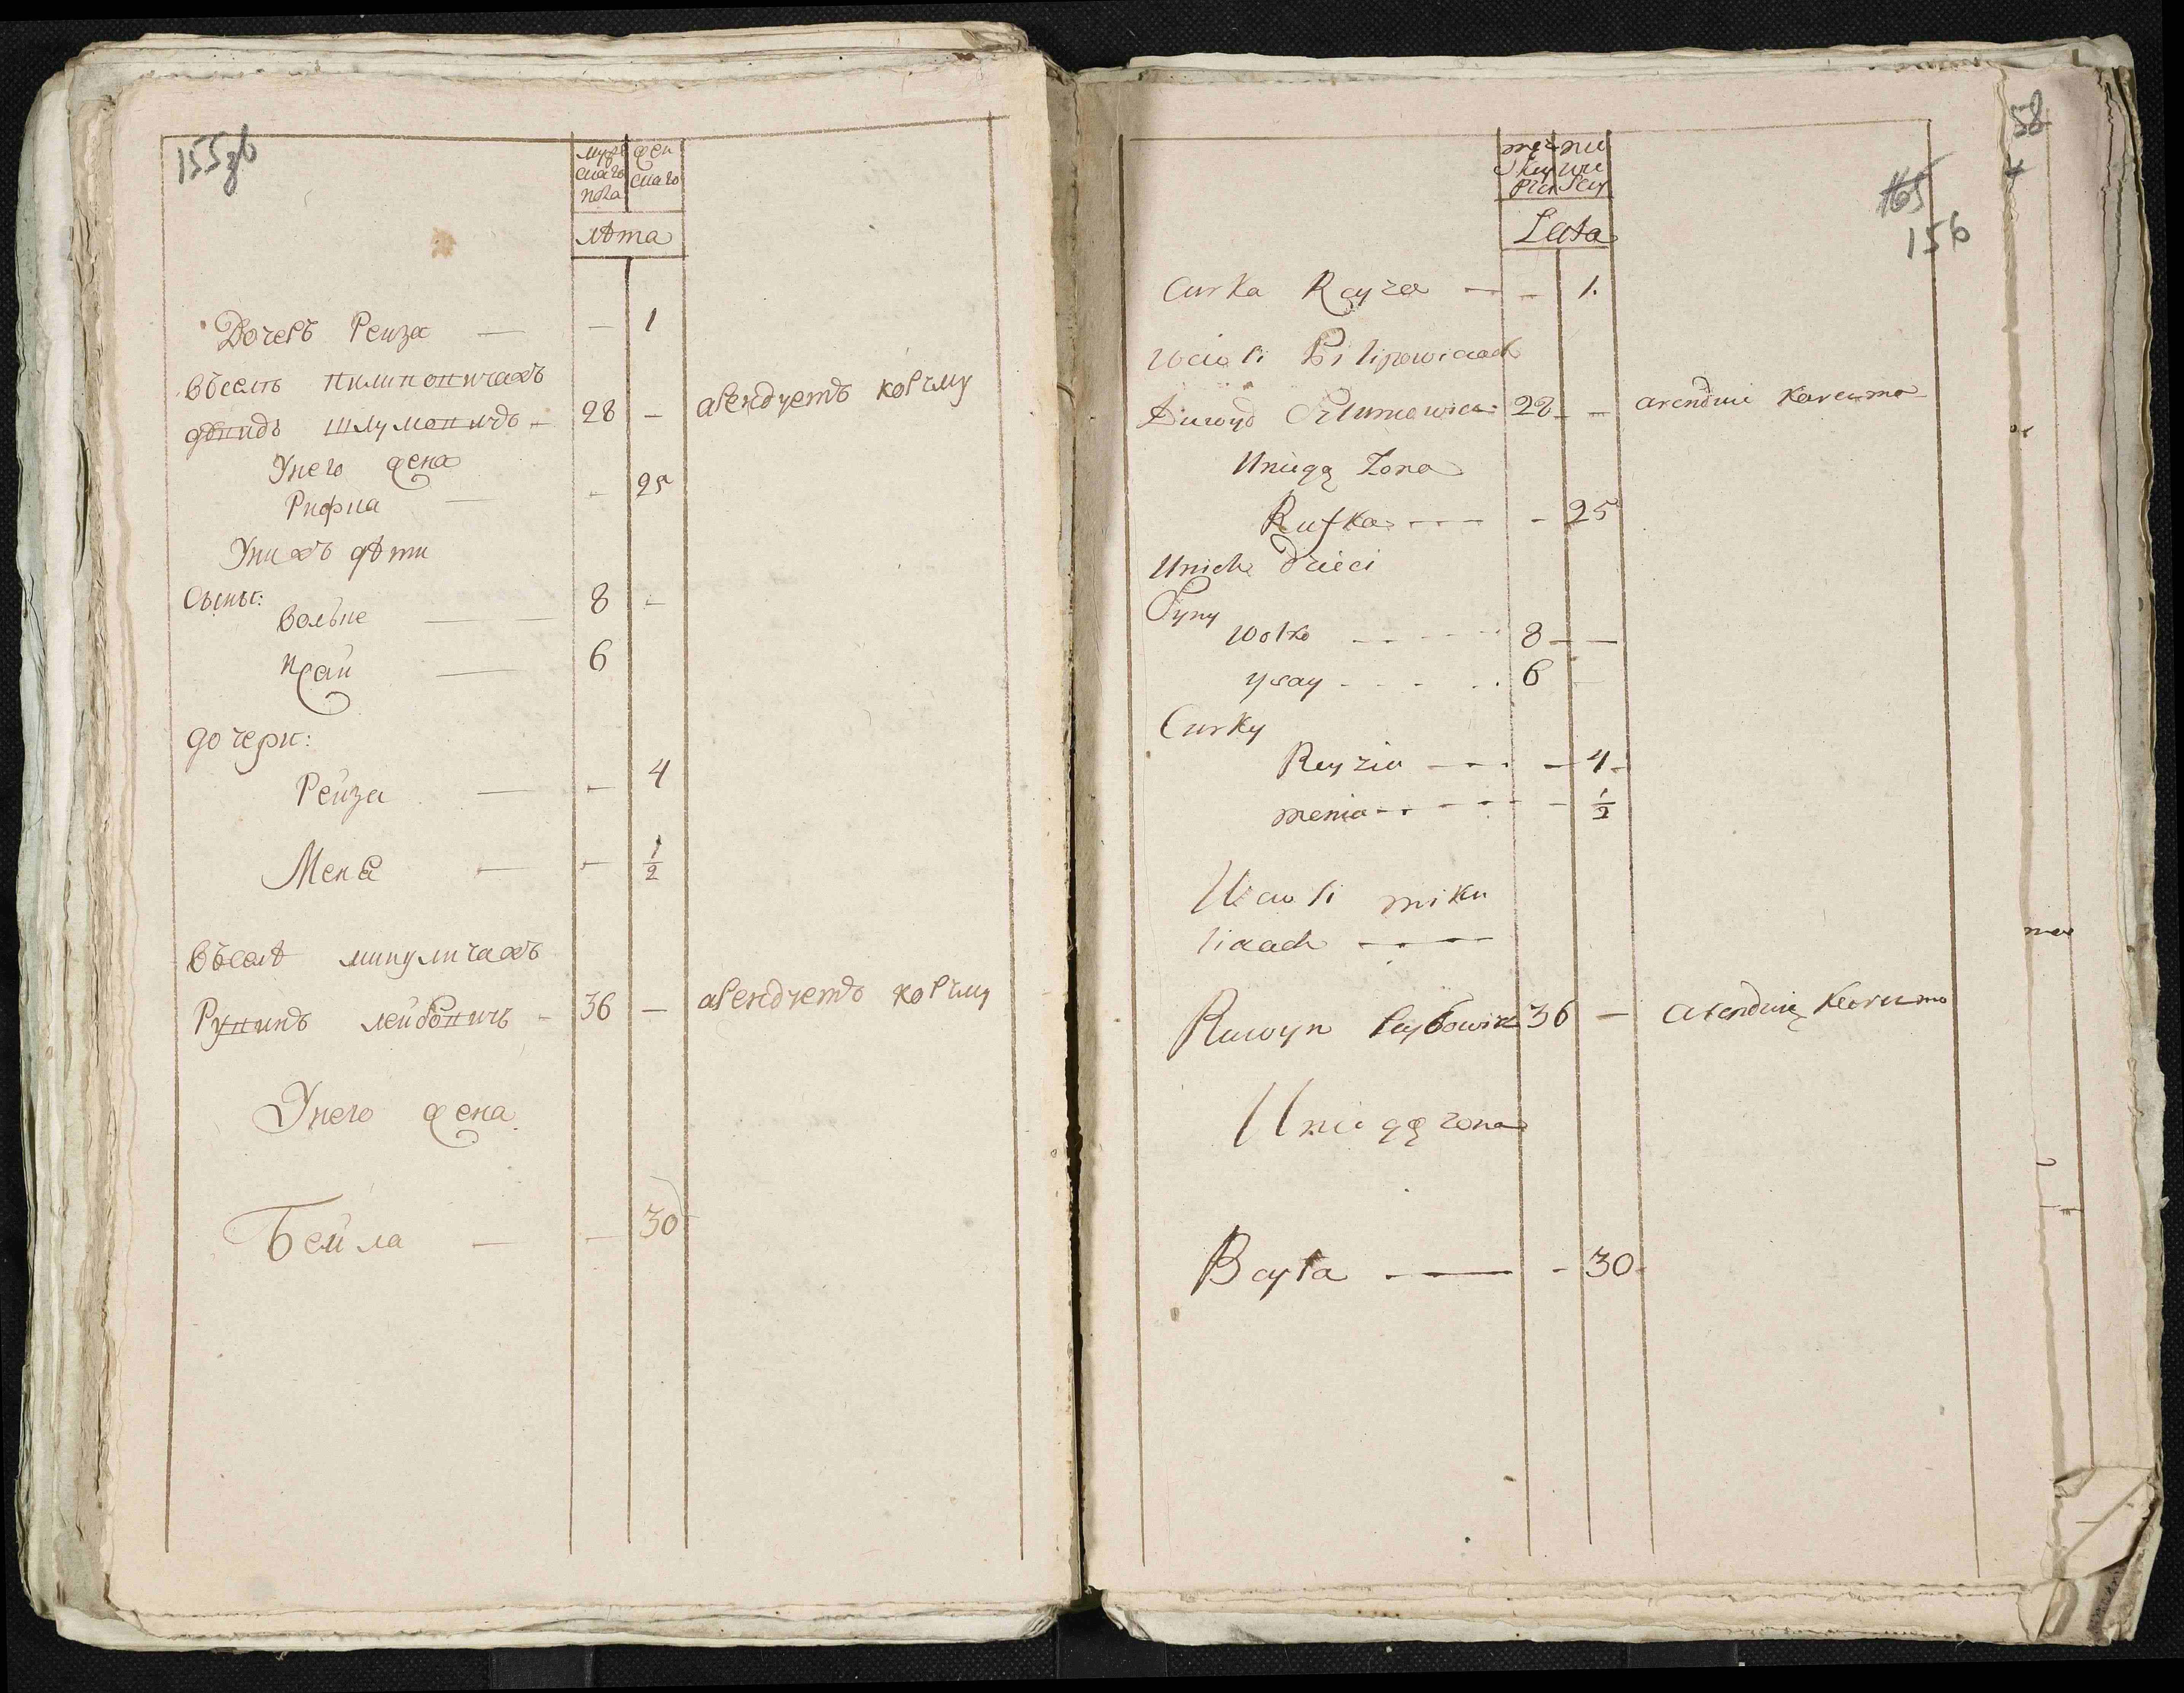 155зв
мужескаго пола
женскаго
лѣта
Дочерь Рейза — — 1
Въселѣ пилиповичахъ
давидъ шлумовичъ — 28 — арендуетъ корчму
Унего жена
Рифка — — 25
Унихъ дѣти
Сыны:
Волько — 8 —
Ісай — 6
дочери:
Рейза — — 4
Меня — — 1/2
Въселѣ микуличахъ
Рувинъ лейбовичъ — 36 — арендуетъ корчму
Унего жена
Бейла — — 30
58
165
156
Lata
Curka Rayza — — 1.
Wcioli Pilipowiczach
Dawyd Szlumowicz 28 — — arenduie karczmo
Uniego Zona
Rufka — — — 25
Unich Dzieci
Syny
Wolko — — — 8 — —
ysay — — — 6 —
Curky
Reyzia — — — 4 —
menia — — — 1/2
Wcioli miku
liczach — — —
Ruwyn leybowicz 36 — arenduie karczmo
Uniego zona
Bayla — — — 30